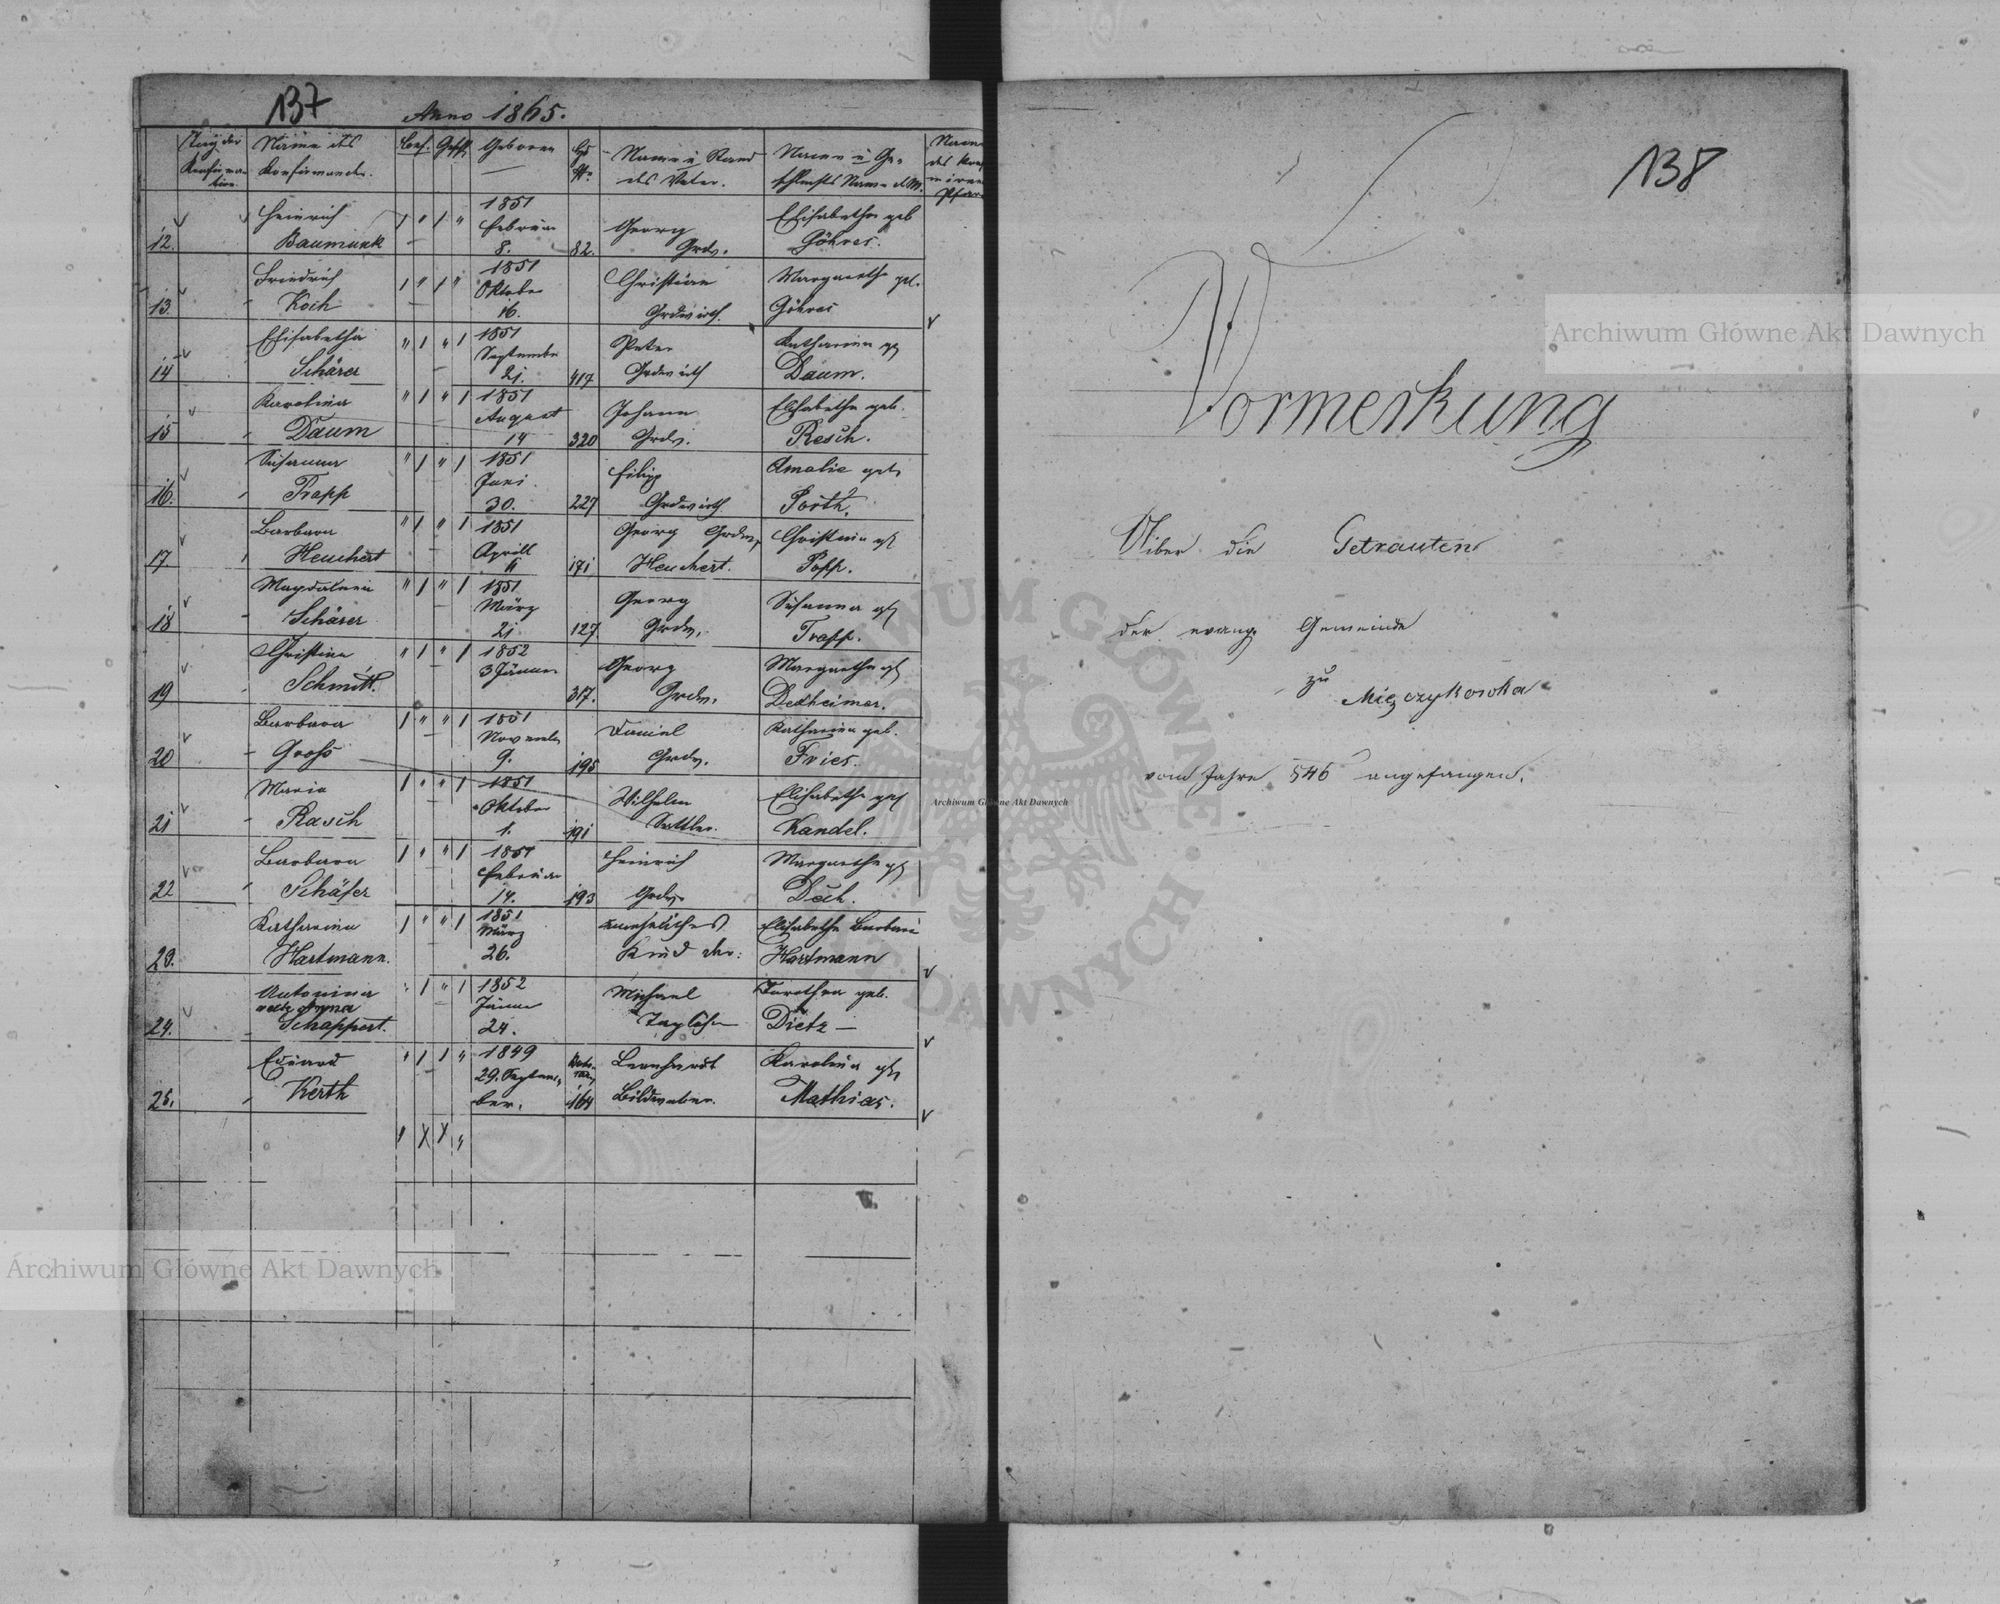 137
Anno 1865.
Tag der Konfirmation. Name des Konfirmanden. Conf. Geschl. Geboren Name u Stand des Vater. Name u Geschlechts Name d. M.
12. Heinrich Baumunk 1851 Februar 8. 82. Georg Grdw. Elisabetha geb Göhres.
13. Friedrich Koch 1851 Oktober 16. Christian Grdwirth. Margaretha geb. Göhres
14 Elisabetha Schärer 1851 September 21. 417 Peter Grdwirth Katharina geb Daum.
15 Karolina Daum 1851 August 14 320 Johann Grdw. Elisabetha geb. Resch.
16. Susanna Trapp 1851 Juni. 30. 227 Filipp Grdwirth Amalie geb Porth.
17. Barbara Heuchert 1851 Aprill 11 171 Georg Grdw. Heuchert. Christina geb Popp.
18 Magdalena Schärer 1851 März 21 127 Georg Grdw. Susanna geb Trapp.
19 Christina Schmitt. 1852 3 Jänner 317. Georg Grdw. Margaretha geb Dexheimer.
20 Barbara Groß 1851 November 9. 195 Daniel Grdw. Katharina geb. Fries.
21 Maria Rasch 1851 Oktober 1. 191 Wilhelm Sattler. Elisabetha geb Kandel.
22 Barbara Schäfer 1851 Februar 14. 193 Heinrich Grdw. Margaretha geb Dech.
23. Katharina Hartmann. 1851 März 26. unehliches Kind der: Elisabetha Barbara Hartmann
24. Antonina Schappert. 1852 Jänner 24. Michael Taglöhn Dorothea geb. Dietz —
25. Eduard Kerth 1849 29. September. 164 Leonhardt Bildweber. Karolina geb Mathias.
138
Vormerkung
Über die Getrauten
der evang. Gemeinde
zu
vom Jahre 846 angefangen.
Archiwum Główne Akt Dawnych
Archiwum Główne Akt Dawnych
Archiwum Główne Akt Dawnych